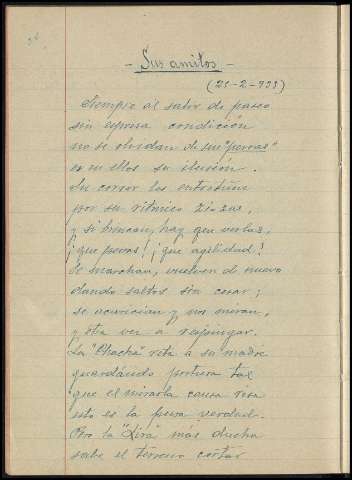 - Sus amitos -
(21-2-933)
Siempre al salir de paseo
sin expresa condición
no se olvidan de sus "perras"
es en ellos su ilusión.
Su correr les entretiene
por su rítmico zis-zas,
y si brincan, hay que verlas,
¡que poses! ¡que agilidad!
Se marchan, vuelven de nuevo
dando saltos sin cesar;
se acarician y nos miran,
y otra vez a respingar.
La "Chacha" reta a su madre
guardando postura tal
que el mirarla causa risa
esto es la pura verdad.
Pero la "Lira" más ducha
sabe el terreno cortar